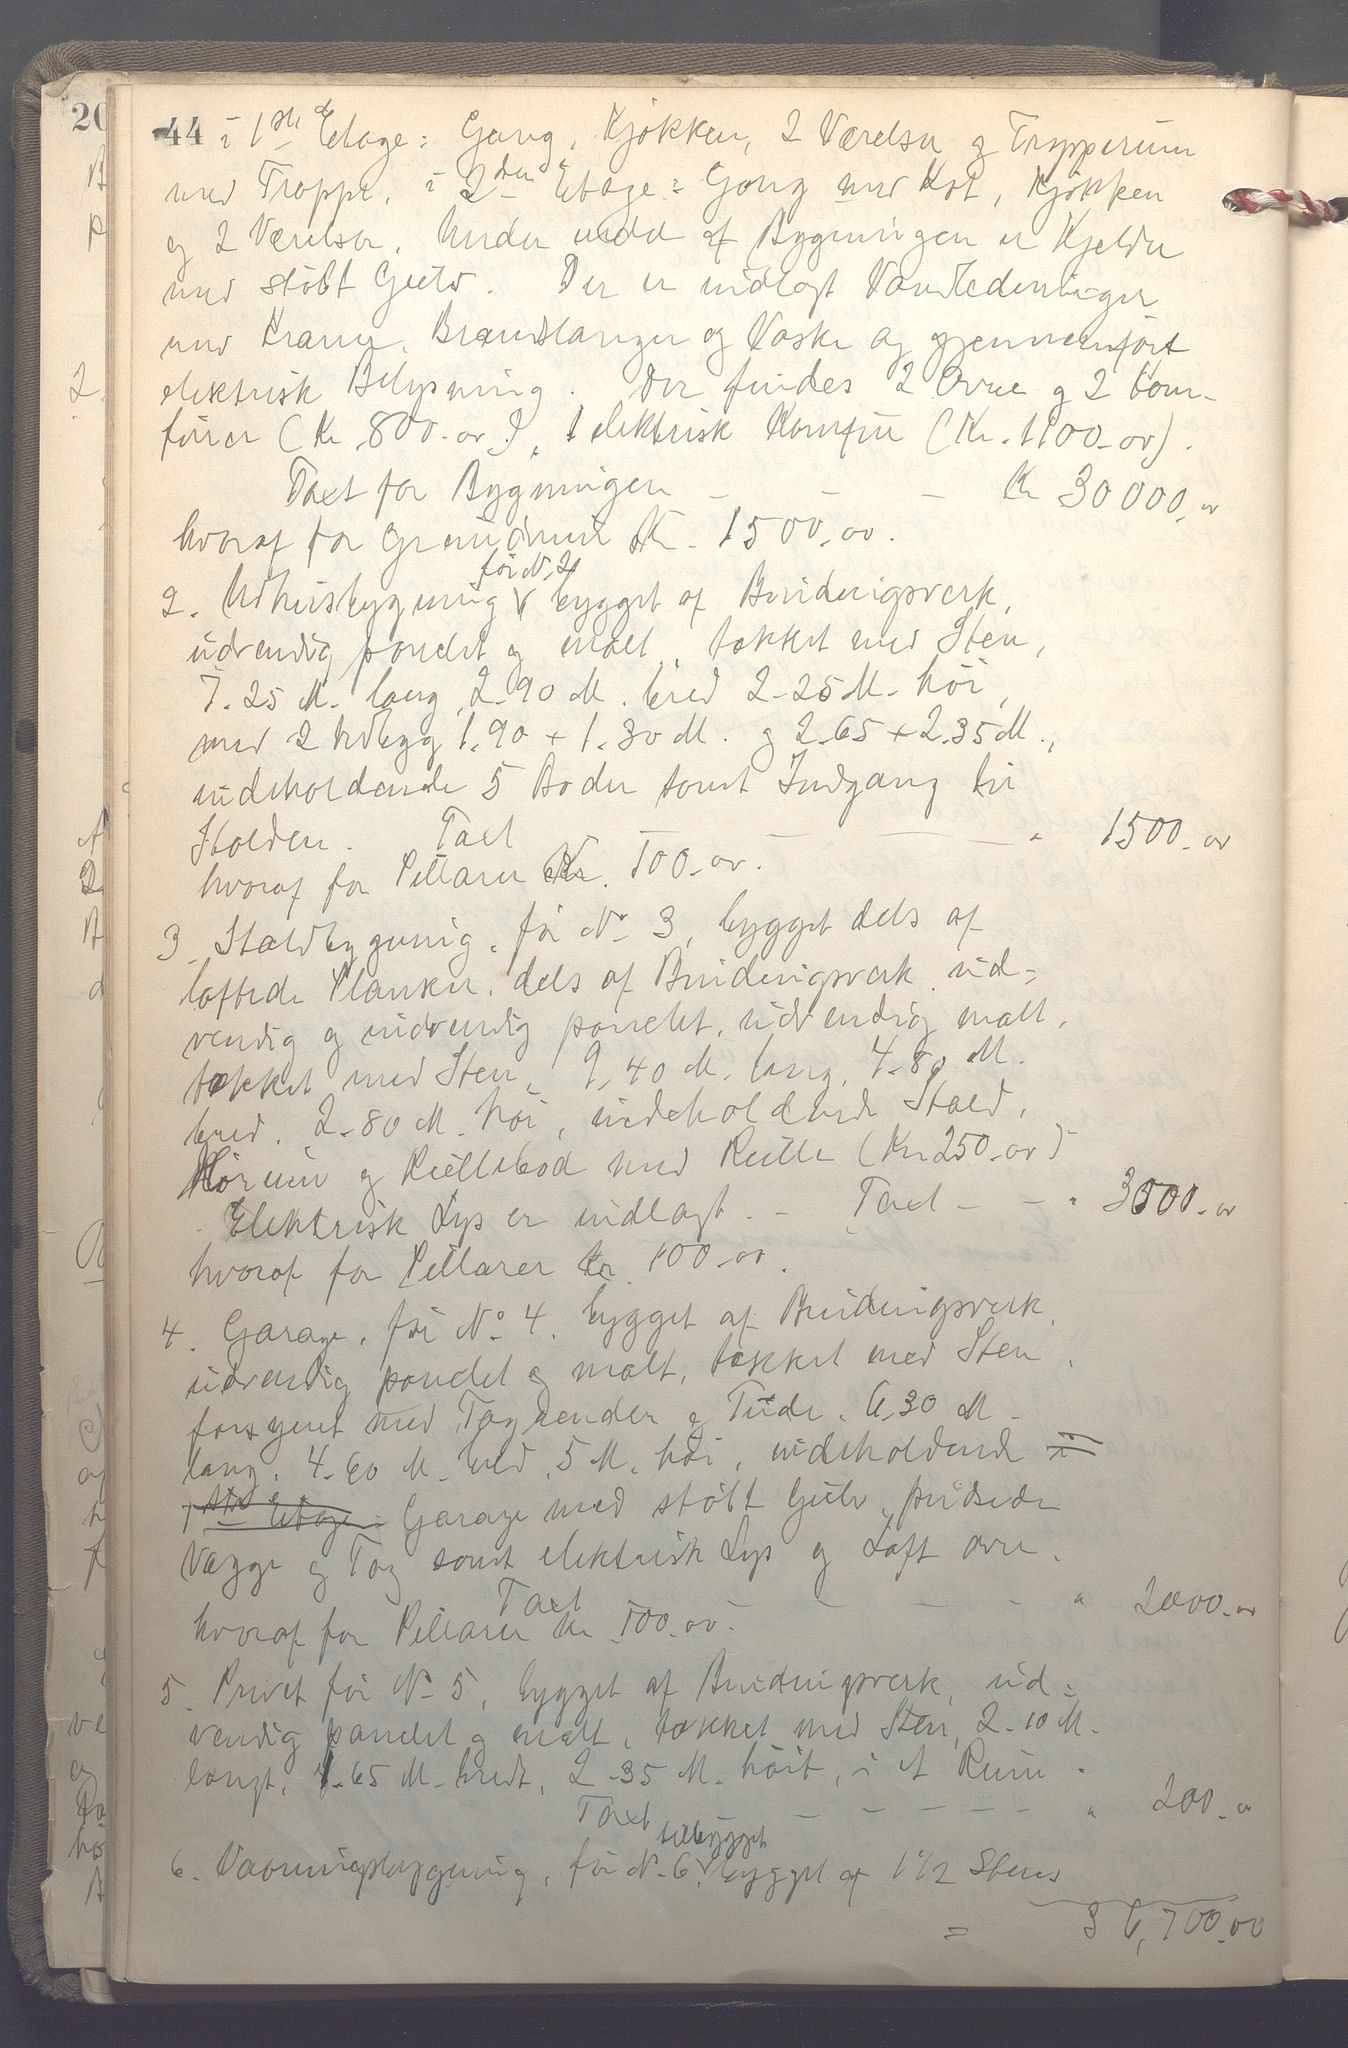 44 i 1ste Etage: Gang, Kjøkken, 2 Værelser og Trapperum
med Trappe, i 2den Etage: Gang med Kot, Kjøkken
og 2 Værelser. Under midten af Bygningen er Kjelder
med støbt Gulv. Der er indlagt Vandledninger
med Kraner, Brandslanger og Vaske og gjennemført
elektrisk Belysning. Der findes 2 Ovne og 2 Kom-
fører (Kr. 800.00), 1 elektrisk Komfur (Kr. 1100.00).
Taxt for Bygningen - - - Kr 30000.00
hvoraf for Grundmur Kr. 1500.00.
før No 2
2. Udhusbygning bygget af Bindingsverk,
udvendig panelet og malt, tækket med Sten,
7.25 M. lang, 2.90 M. bred 2.25 M. høi,
med 2 Udbygg 1.90 + 1.30 M. og 2.65 + 2.35 M.,
indeholdende 5 Boder samt Indgang til
Stalden. Taxt - - - " 1500.00
hvoraf for Pillarer Kr. 100.00.
3. Staldbygning, før No 3, bygget dels af
laftede Planker, dels af Bindingsverk, ud=
vendig og indvendig panelet, udvendig malt,
tækket med Sten, 9.40 M. lang, 4.80 M.
bred, 2.80 M. høi, indeholdende Stald,
Hørum og Rullebod med Rulle (Kr 250.00)
Elektrisk Lys er indlagt. - Taxt - - " 3000.00
hvoraf for Pillarer Kr. 100.00.
4. Garage, før No 4, bygget af Bindingsverk,
udvendig panelet og malt, tækket med Sten,
forsynet med Tagrender og Tude, 6.30 M.
lang, 4.60 M. bred, 5 M. høi, indeholdende i
1ste Etage: Garage med støbt Gulv, pudsede
Vægge og Tag samt elektrisk Lys og Loft over.
Taxt - - - - " 2000.00
hvoraf for Pillarer Kr. 100.00.
5. Privet før No 5, bygget af Bindingsverk, ud=
vendig panelet og malt, tækket med Sten, 2.10 M.
langt, 1.65 M. bredt, 2.35 M. høit, i et Rum.
Taxt - - - - - " 200.00
tilbygget
6. Vaaningsbygning, før No 6, bygget af 1 1/2 Stens
= 36,700.00